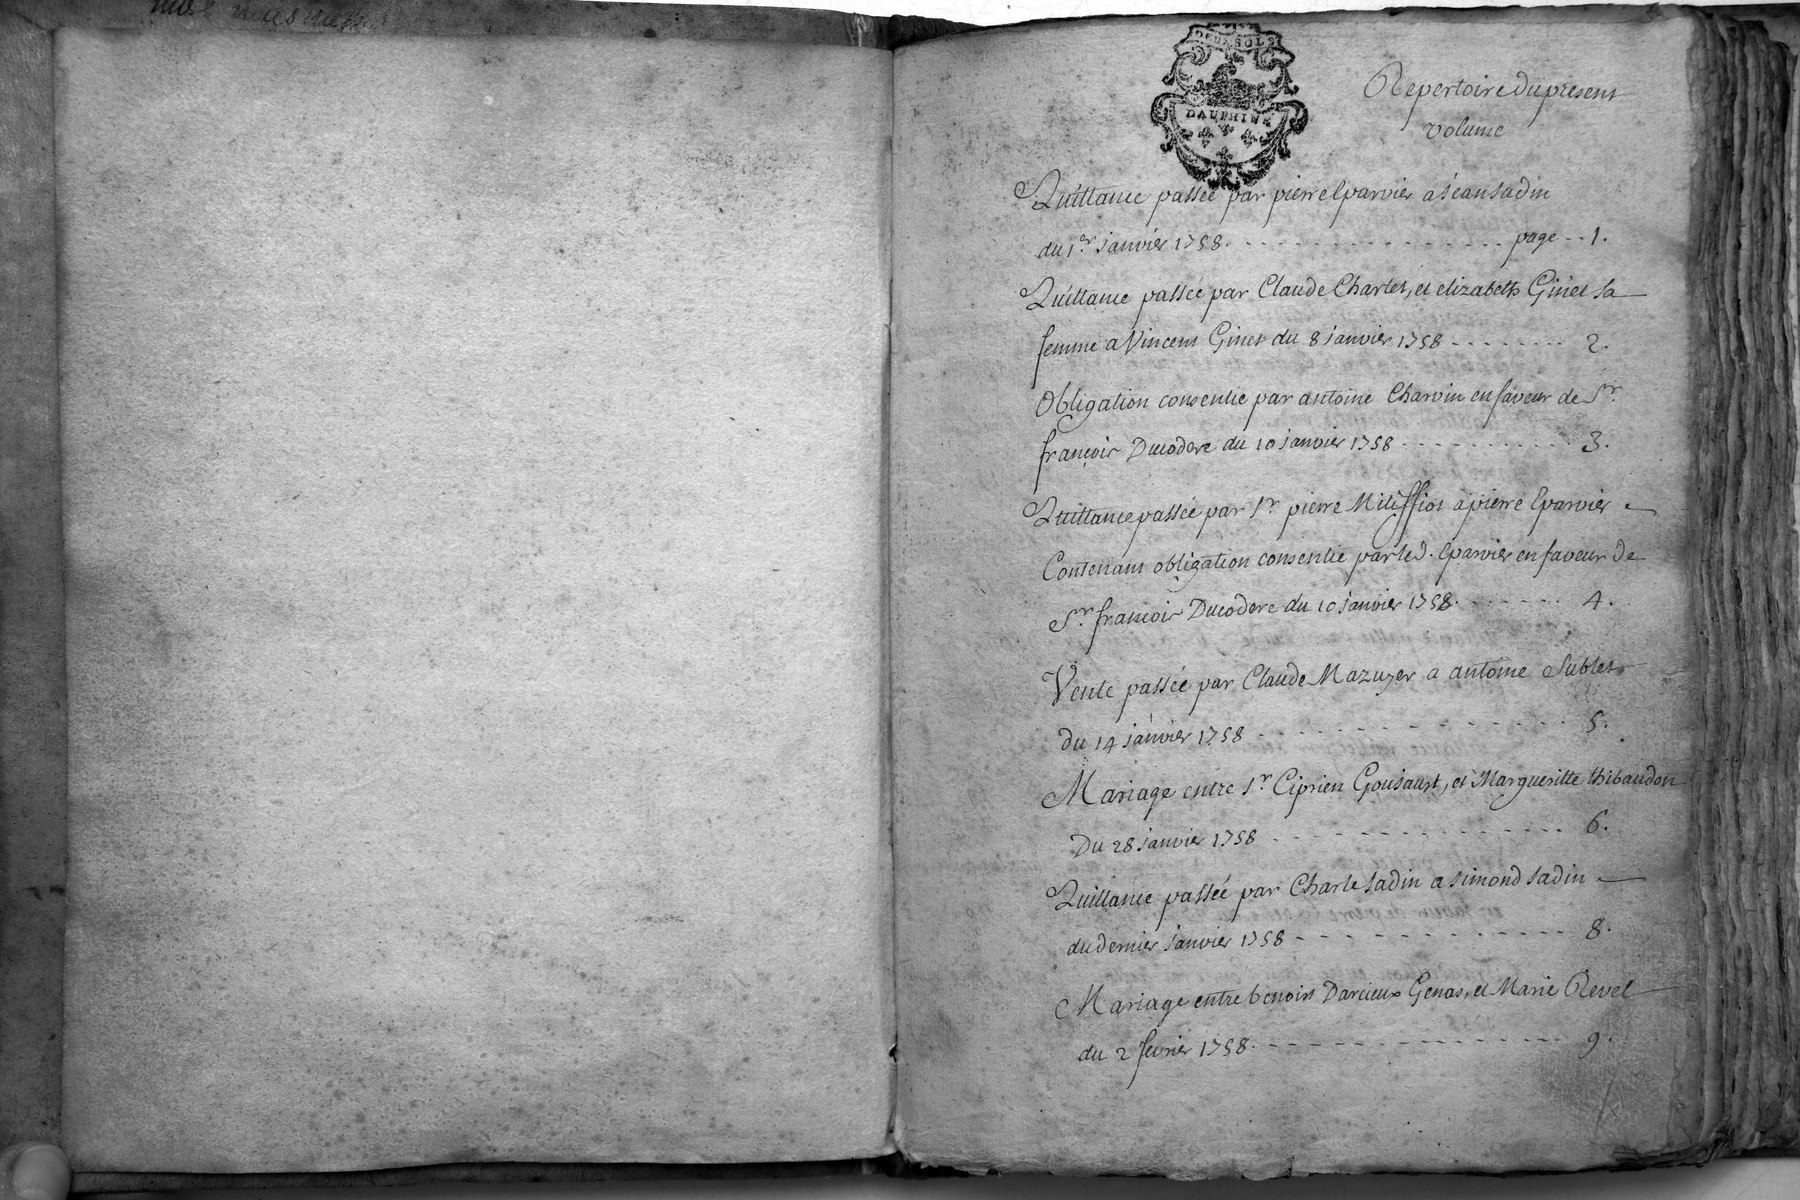 DEUX SOLS
DAUPHINE
Repertoire du present
volume
Quittance passée par pierre Eparvier a Jean Jadin
du 1er Janvier 1758. - - - - - - - - - - page - - 1.
Quittance passée par Claude Charlet, et elizabeth Ginet sa
femme a Vincent Ginet du 8 Janvier 1758 - - - - - - - - 2.
Obligation consentie par antoine Charvin en faveur de Sr.
françois Ducodere du 10 Janvier 1758 - - - - - - - - - - 3.
Quittance passée par Sr pierre a pierre Eparvier
Contenant obligation consentie par led. Eparvier en faveur de
Sr. françois Ducodere du 10 Janvier 1758. - - - - - - 4.
Vente passée par Claude Mazuyer a antoine Sublet
du 14 Janvier 1758 - - - - - - - - - - - - 5.
Mariage entre Sr Ciprien Goujaust, et Margueritte thibaudon
Du 28 Janvier 1758 - - - - - - - - - - - - 6.
Quittance passée par Charle Jadin a Simond Jadin
du dernier Janvier 1758 - - - - - - - - - - - - 8.
Mariage entre benoist Darcieux Genas, et Marie Revel
du 2 fevrier 1758. - - - - - - - - - - - - 9.